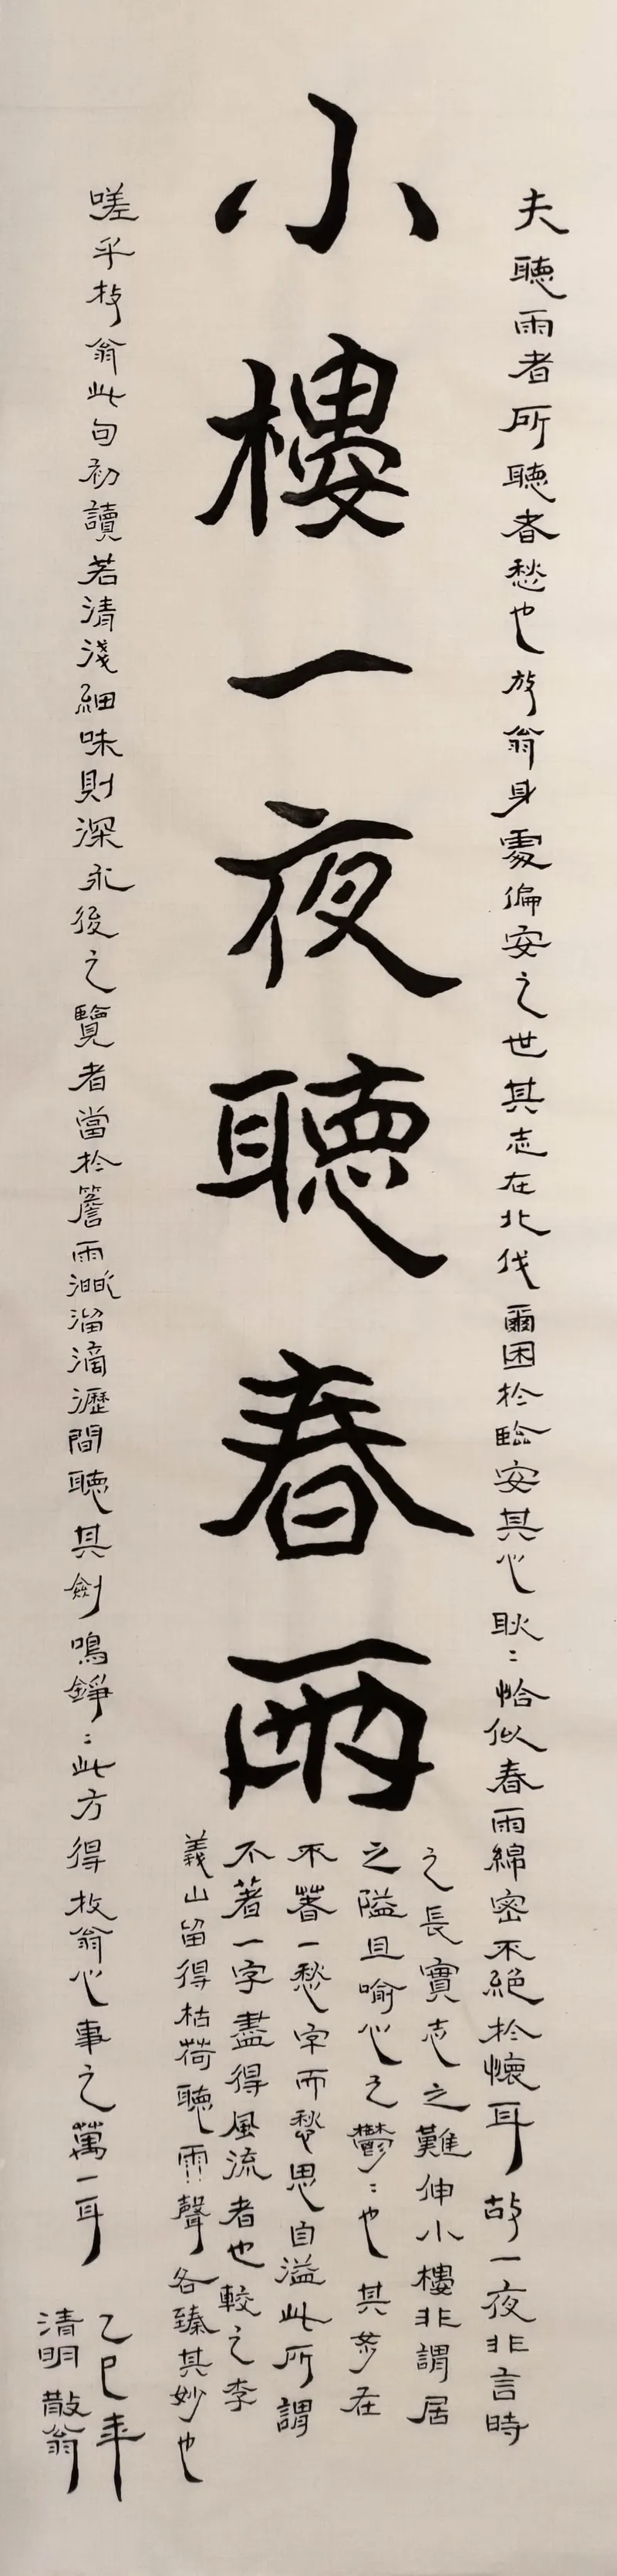 小樓一夜聽春雨
夫聽雨者所聽者愁也放翁身處偏安之世其志在北伐爾困於臨安其心耿〻恰似春雨綿密不絕於懷耳故一夜非言時
之長實志之難伸小樓非謂居
之隘且喻心之鬱〻也其妙在
不著一愁字而愁思自溢此所謂
不著一字盡得風流者也較之李
義山留得枯荷聽雨聲各臻其妙也
嗟乎放翁此句初讀若清淺細味則深永後之覽者當於簷雨溜滴瀝間聽其劍鳴錚〻此方得放翁心事之萬一耳
乙巳年
清明 散翁